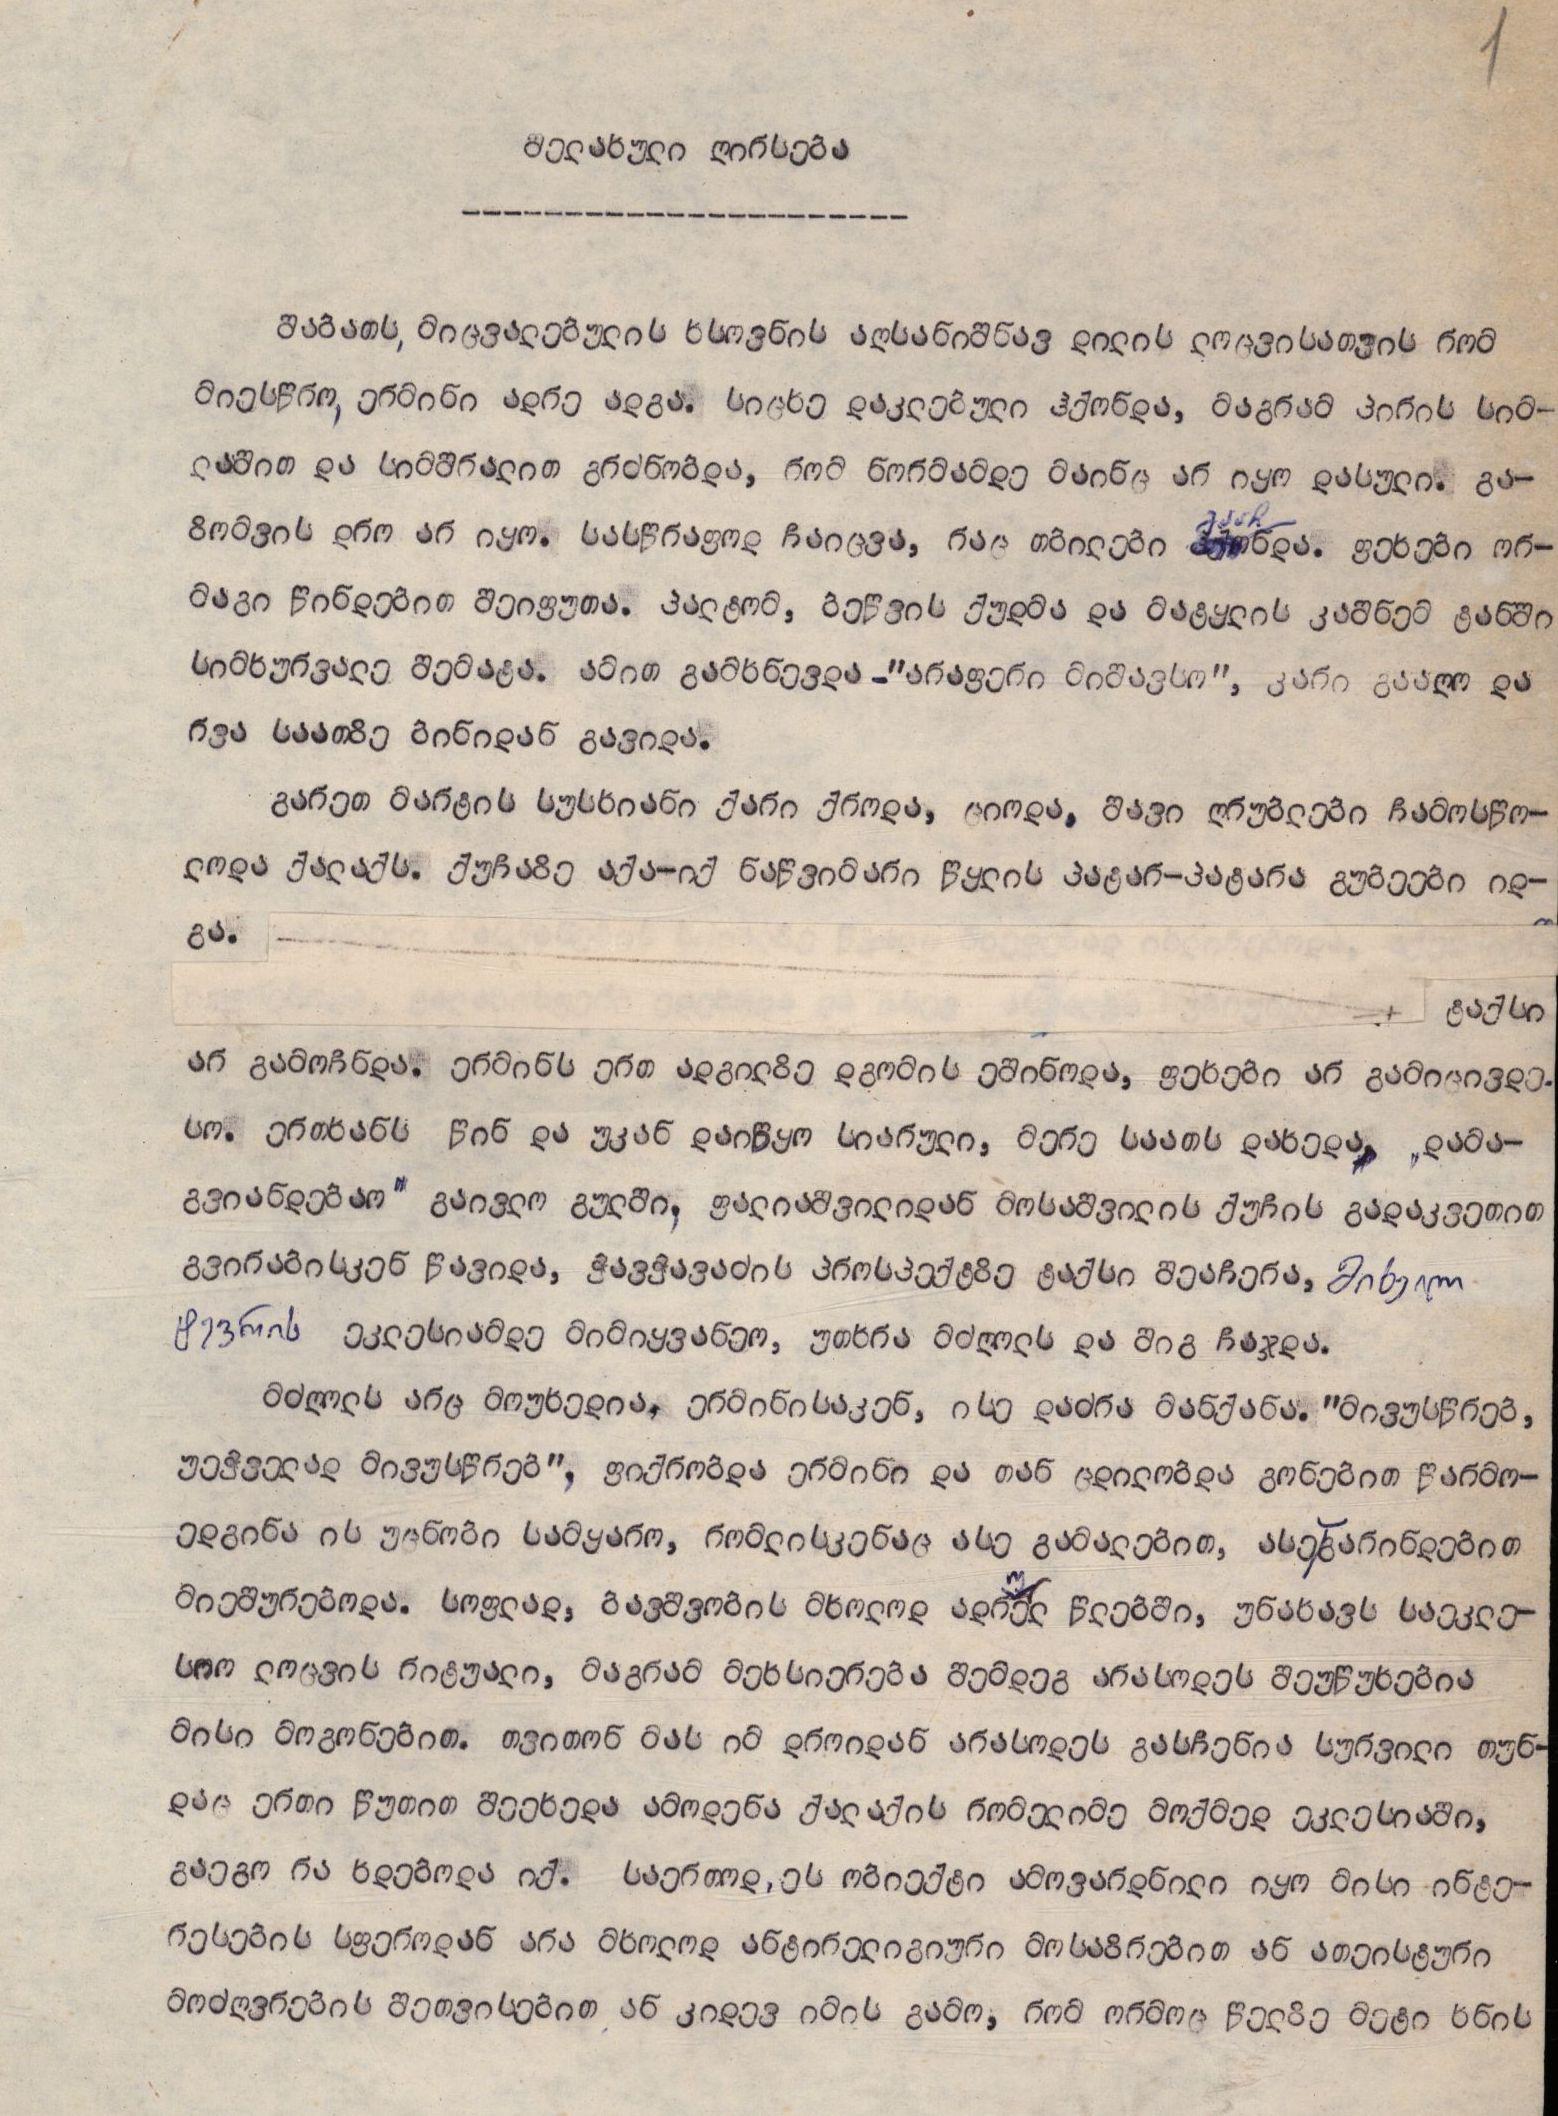 1
შელახული ღირსება
-----------------------
შაბათს, მიცვალებულის ხსოვნის აღსანიშნავ დილის ლოცვისათვის რომ
მიესწრო, ერმინი ადრე ადგა. სიცხე დაკლებული ჰქონდა, მაგრამ პირის სიმ-
ლაშით და სიმშრალით გრძნობდა, რომ ნორმამდე მაინც არ იყო დასული. გა-
ზომვის დრო არ იყო. სასწრაფოდ ჩაიცვა, რაც თბილები გააჩნდა. ფეხები ორ-
მაგი წინდებით შეიფუთა. პალტომ, ბეწვის ქუდმა და მატყლის კაშნემ ტანში
სიმხურვალე შემატა. ამით გამხნევდა -"არაფერი მიშავსო", კარი გააღო და
რვა საათზე ბინიდან გავიდა.
გარეთ მარტის სუსხიანი ქარი ქროდა, ციოდა, შავი ღრუბლები ჩამოსწო-
ლოდა ქალაქს. ქუჩაზე აქა-იქ ნაწვიმარი წყლის პატარ-პატარა გუბეები იდ-
გა.
ტაქსი
არ გამოჩნდა. ერმინს ერთ ადგილზე დგომის ეშინოდა, ფეხები არ გამიცივდე-
სო. ერთხანს წინ და უკან დაიწყო სიარული, მერე საათს დახედა, „დამა-
გვიანდებაო" გაივლო გულში, ფალიაშვილიდან მოსაშვილის ქუჩის გადაკვეთით
გვირაბისკენ წავიდა, ჭავჭავაძის პროსპექტზე ტაქსი შეაჩერა, მიხეილ
ტვერის ეკლესიამდე მიმიყვანეო, უთხრა მძღოლს და შიგ ჩაჯდა.
მძღოლს არც მოუხედია, ერმინისაკენ, ისე დაძრა მანქანა. "მივუსწრებ,
უეჭველად მივუსწრებ", ფიქრობდა ერმინი და თან ცდილობდა გონებით წარმო-
ედგინა ის უცნობი სამყარო, რომლისკენაც ასე გამალებით, ასე გარინდებით
მიეშურებოდა. სოფლად, ბავშვობის მხოლოდ ადრეულ წლებში, უნახავს საეკლე-
სიო ლოცვის რიტუალი, მაგრამ მეხსიერება შემდეგ არასოდეს შეუწუხებია
მისი მოგონებით. თვითონ მას იმ დროიდან არასოდეს გასჩენია სურვილი თუნ-
დაც ერთი წუთით შეეხედა ამოდენა ქალაქის რომელიმე მოქმედ ეკლესიაში,
გაეგო რა ხდებოდა იქ. საერთოდ, ეს ობიექტი ამოვარდნილი იყო მისი ინტე-
რესების სფეროდან არა მხოლოდ ანტირელიგიური მოსაზრებით ან ათეისტური
მოძღვრების შეთვისებით ან კიდევ იმის გამო, რომ ორმოც წელზე მეტი ხნის